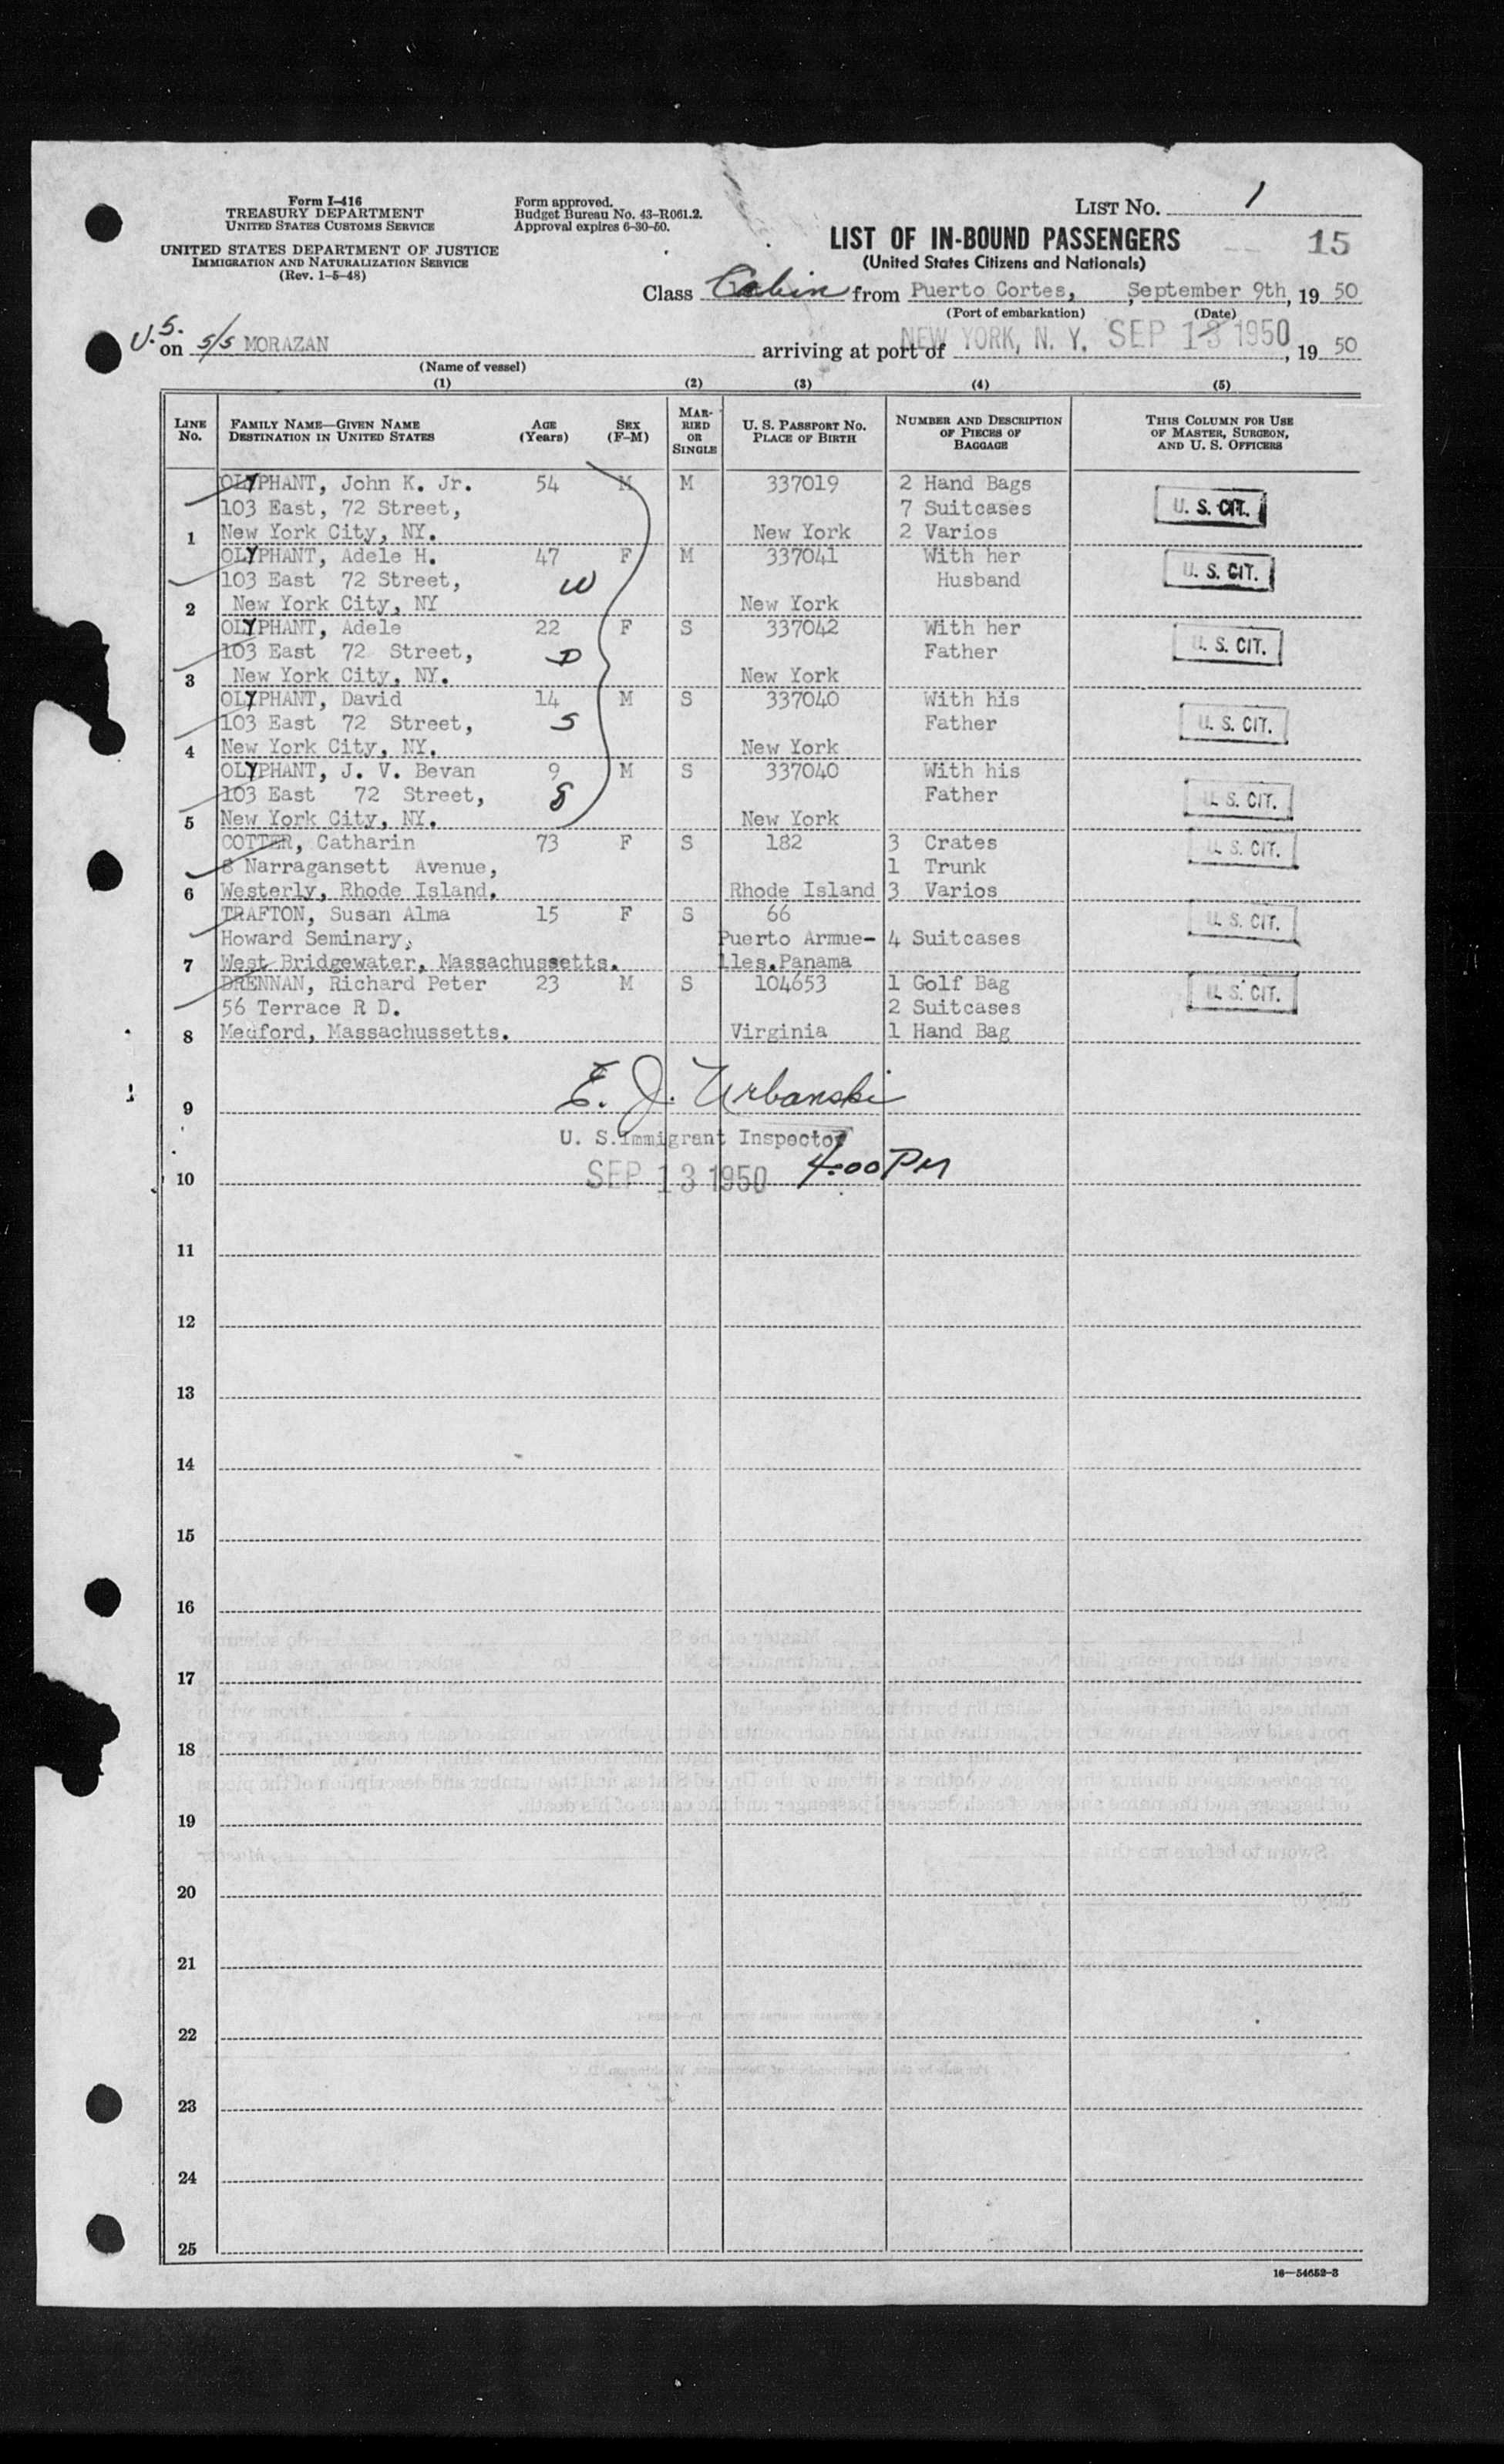 Form I-416
TREASURY DEPARTMENT
UNITED STATES CUSTOMS SERVICE
UNITED STATES DEPARTMENT OF JUSTICE
IMMIGRATION AND NATURALIZATION SERVICE
(Rev. 1-5-48)
Form approved.
Budget Bureau No. 43-R061.2.
Approval expires 6-30-50.
LIST NO. 1
LIST OF IN-BOUND PASSENGERS
15
(United States Citizens and Nationals)
Class Cabin from Puerto Cortes, , September 9th, 19 50
(Port of embarkation) (Date)
U.S. on S/S MORAZAN arriving at port of NEW YORK, N. Y. SEP 13 1950, 19 50
(Name of vessel)
(1) (2) (3) (4) (5)
LINE No. FAMILY NAME—GIVEN NAME DESTINATION IN UNITED STATES AGE (Years) SEX (F-M) MARRIED OR SINGLE U. S. PASSPORT NO. PLACE OF BIRTH NUMBER AND DESCRIPTION OF PIECES OF BAGGAGE THIS COLUMN FOR USE OF MASTER, SURGEON, AND U. S. OFFICERS
OLYPHANT, John K. Jr. 54 M M 337019 2 Hand Bags
103 East, 72 Street, 7 Suitcases U. S. CIT.
1 New York City, NY. New York 2 Varios
OLYPHANT, Adele H. 47 F M 337041 With her
103 East 72 Street, W Husband U. S. CIT.
2 New York City, NY New York
OLYPHANT, Adele 22 F S 337042 With her
103 East 72 Street, D Father U. S. CIT.
3 New York City, NY. New York
OLYPHANT, David 14 M S 337040 With his
103 East 72 Street, S Father U. S. CIT.
4 New York City, NY. New York
OLYPHANT, J. V. Bevan 9 M S 337040 With his
103 East 72 Street, S Father U. S. CIT.
5 New York City, NY. New York
COTTER, Catharin 73 F S 182 3 Crates U. S. CIT.
8 Narragansett Avenue, 1 Trunk
6 Westerly, Rhode Island. Rhode Island 3 Varios
TRAFTON, Susan Alma 15 F S 66 U. S. CIT.
Howard Seminary, Puerto Armue- 4 Suitcases
7 West Bridgewater, Massachussetts. lles.Panama
DRENNAN, Richard Peter 23 M S 104653 1 Golf Bag U. S. CIT.
56 Terrace R D. 2 Suitcases
8 Medford, Massachussetts. Virginia 1 Hand Bag
E. J. Urbanski
9
U. S. Immigrant Inspector
10 SEP 13 1950 4:00 PM
11
12
13
14
15
16
17
18
19
20
21
22
23
24
25
16—54652-3